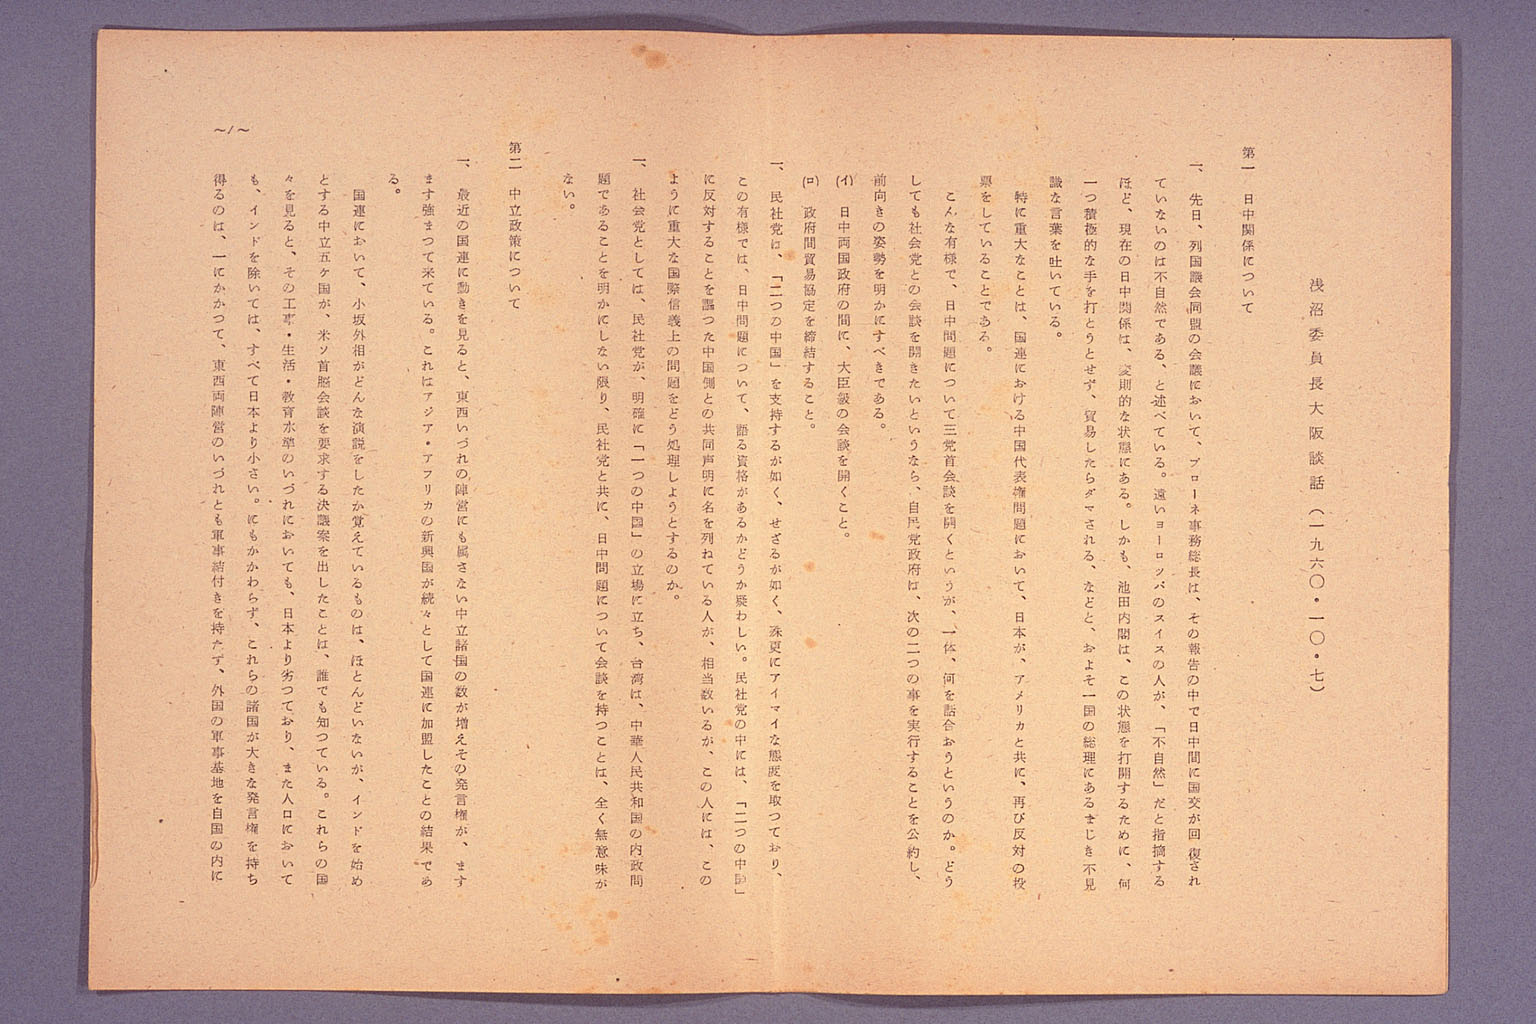 浅沼委員長大阪談話（一九六〇・一〇・七）
第一　日中関係について
一、先日、列国議会同盟の会議において、ブローネ事務総長は、その報告の中で日中間に国交が回復され
ていないのは不自然である、と述べている。遠いヨーロツパのスイスの人が、「不自然」だと指摘する
ほど、現在の日中関係は、変則的な状態にある。しかも、池田内閣は、この状態を打開するために、何
一つ積極的な手を打とうとせず、貿易したらダマされる、などと、およそ一国の総理にあるまじき不見
識な言葉を吐いている。
特に重大なことは、国連における中国代表権問題において、日本が、アメリカと共に、再び反対の投
票をしていることである。
こんな有様で、日中問題について三党首会談を開くというが、一体、何を話合おうというのか。どう
しても社会党との会談を開きたいというなら、自民党政府は、次の二つの事を実行することを公約し、
前向きの姿勢を明かにすべきである。
(イ)　日中両国政府の間に、大臣級の会談を開くこと。
(ロ)　政府間貿易協定を締結すること。
一、民社党は、「二つの中国」を支持するが如く、せざるが如く、殊更にアイマイな態度を取つており、
この有様では、日中問題について、語る資格があるかどうか疑わしい。民社党の中には、「二つの中国」
に反対することを謳つた中国側との共同声明に名を列ねている人が、相当数いるが、この人には、この
ように重大な国際信義上の問題をどう処理しようとするのか。
一、社会党としては、民社党が、明確に「一つの中国」の立場に立ち、台湾は、中華人民共和国の内政問
題であることを明かにしない限り、民社党と共に、日中問題について会談を持つことは、全く無意味が
ない。
第二　中立政策について
一、最近の国連に動きを見ると、東西いづれの陣営にも属さない中立諸国の数が増えその発言権が、ます
ます強まつて来ている。これはアジア・アフリカの新興国が続々として国連に加盟したことの結果であ
る。
国連において、小坂外相がどんな演説をしたか覚えているものは、ほとんどいないが、インドを始め
とする中立五ケ国が、米ソ首脳会談を要求する決議案を出したことは、誰でも知つている。これらの国
々を見ると、その工事・生活・教育水準のいづれにおいても、日本より劣つており、また人口において
も、インドを除いては、すべて日本より小さい。にもかかわらず、これらの諸国が大きな発言権を持ち
得るのは、一にかかつて、東西両陣営のいづれとも軍事結付きを持たず、外国の軍事基地を自国の内に
～1～